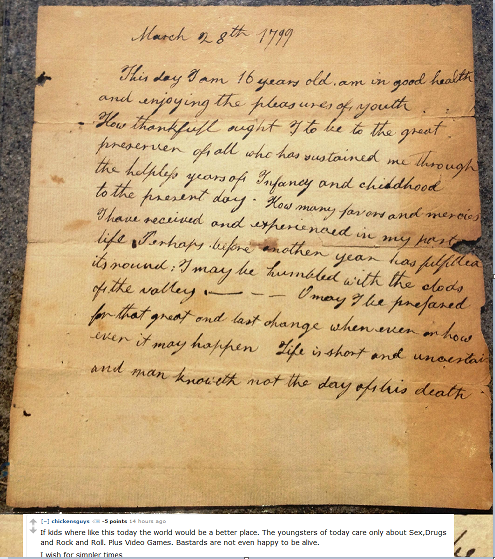 March 28th 1799
This day I am 16 years old. am in good health
and enjoying the pleasures of youth
How thankfull ought I to be to the great
preserver of all who has sustained me through
the helpless years of Infancy and childhood
to the present day. How many favors and mercies
I have received and experienced in my past
life. Perhaps before another year has fulfilled
its round: I may be humbled with the clods
of the valley — - - O may I be prepared
for that great and last change when ever or how
ever it may happen Life is short and uncertain
and man knoweth not the day of his death
[-] chickensguys -5 points 14 hours ago
If kids where like this today the world would be a better place. The youngsters of today care only about Sex,Drugs
and Rock and Roll. Plus Video Games. Bastards are not even happy to be alive.
I wish for simpler times